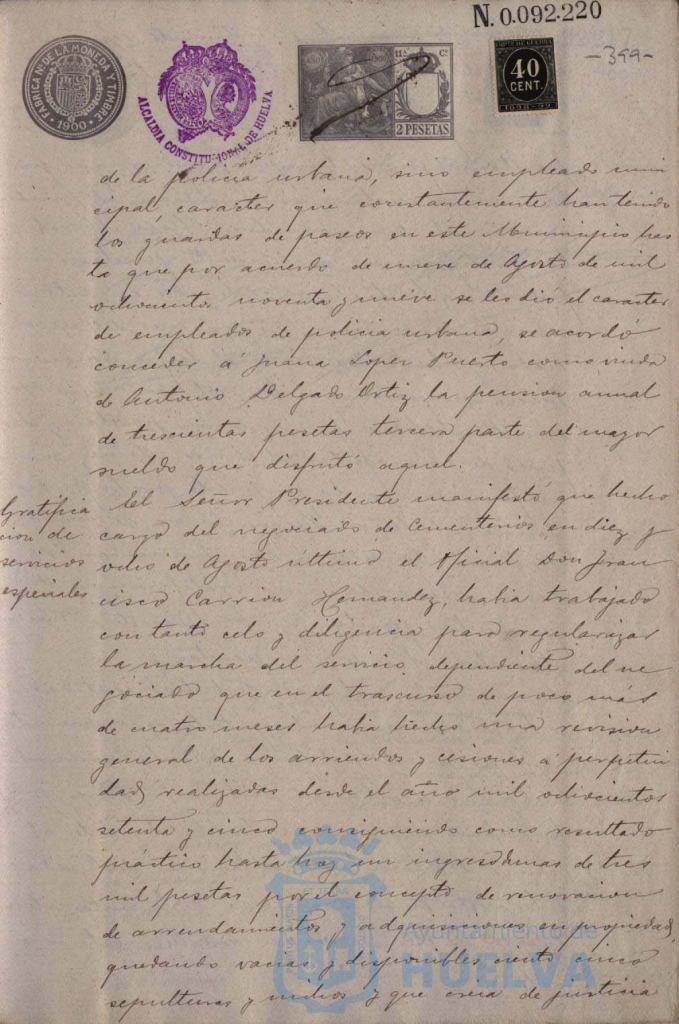 N. 0.092.220
-399-
FABRICA Nal DE LA MONEDA Y TIMBRE
1900
ALCALDIA CONSTITUCIONAL DE HUELVA
11ª Cª
2 PESETAS
IMPTO DE GUERRA
40
CENT.
1898-99
de la policia urbana, sino empleado muni
cipal, caracter que constantemente han tenido
los guardas de paseos en este Municipio has
ta que por acuerdo de nueve de Agosto de mil
ochocientos noventa y nueve se les dió el caracter
de empleados de policia urbana, se acordó
conceder á Juana Lopez Puerto como viuda
de Antonio Delgado Ortiz la pension anual
de trescientas pesetas tercera parte del mayor
sueldo que disfrutó aquel.
Gratifica
cion de
servicios
especiales
El Señor Presidente manifestó que hecho
cargo del negociado de Cementerios en diez y
ocho de Agosto último el Oficial Don Fran
cisco Carrion Hernandez, habia trabajado
con tanto celo y diligencia para regularizar
la marcha del servicio dependiente del ne
gociado que en el trascurso de poco más
de cuatro meses habia hecho una revision
general de los arriendos y cesiones á perpetui
dad realizadas desde el año mil ochocientos
setenta y cinco consiguiendo como resultado
práctico hasta hoy un ingreso de mas de tres
mil pesetas por el concepto de renovacion
de arrendamientos y adquisiciones en propiedad,
quedando vacias y disponibles ciento cinco
sepulturas y nichos y que creia de justicia
Ayuntamiento de
HUELVA